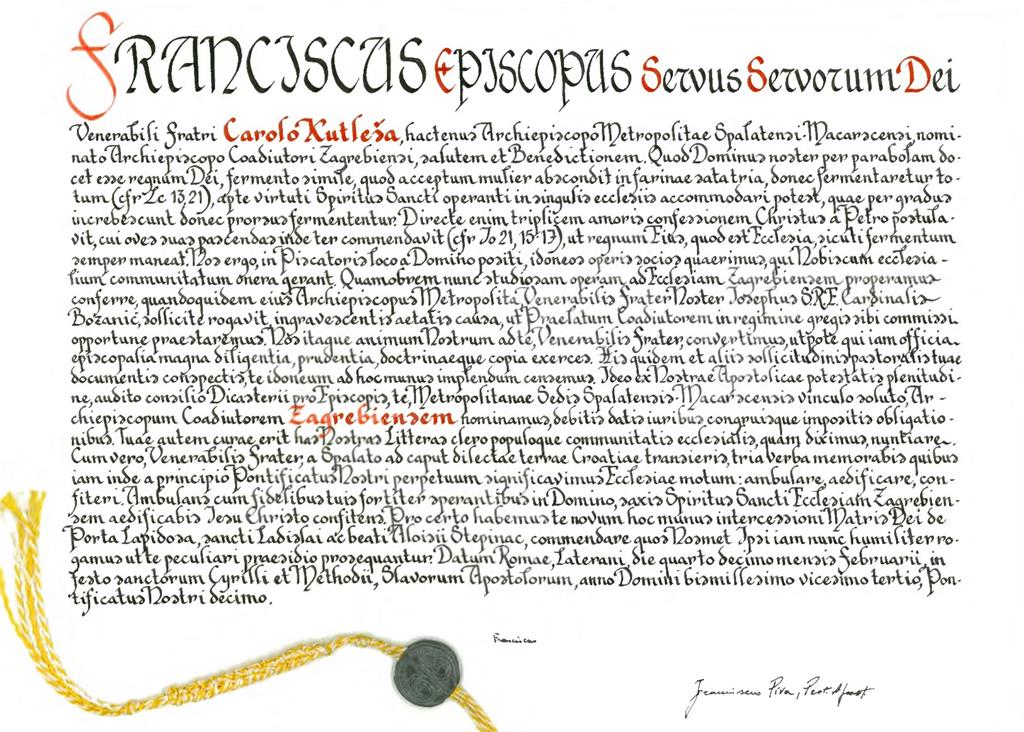 FRANCISCUS EPISCOPUS Servus Servorum Dei
Venerabili Fratri Carolo Kutleša, hactenus Archiepiscopo Metropolitae Spalatensi-Macarscensi, nomi-
nato Archiepiscopo Coadiutori Zagrebiensi, salutem et Benedictionem. Quod Dominus noster per parabolam do-
cet esse regnum Dei, fermento simile, quod acceptum mulier abscondit in farinae sata tria, donec fermentaretur to-
tum (cfr Lc 13,21), apte virtuti Spiritus Sancti operanti in singulis ecclesiis accommodari potest, quae per gradus
increbescunt donec prorsus fermententur. Directe enim triplicem amoris confessionem Christus a Petro postula-
vit, cui oves suas pascendas inde ter commendavit (cfr Io 21, 15-17), ut regnum Eius, quod est Ecclesia, sicuti fermentum
semper maneat. Nos ergo, in Piscatoris loco a Domino positi, idoneos operis socios quaerimus, qui Nobiscum ecclesia-
lium communitatum onera gerant. Quamobrem nunc studiosam operam ad Ecclesiam Zagrebiensem properamus
conferre, quandoquidem eius Archiepiscopus Metropolita Venerabilis Frater Noster Iosephus S.R.E. Cardinalis
Bozanić, sollicite rogavit, ingravescentis aetatis causa, ut Praelatum Coadiutorem in regimine gregis sibi commissi
opportune praestaremus. Nos itaque animum Nostrum ad te, Venerabilis Frater, convertimus, utpote qui iam officia
episcopalia magna diligentia, prudentia, doctrinaeque copia exerces. His quidem et aliis sollicitudinis pastoralis tuae
documentis conspectis, te idoneum ad hoc munus implendum censemus. Ideo ex Nostrae Apostolicae potestatis plenitudi-
ne, audito consilio Dicasterii pro Episcopis, te, Metropolitanae Sedis Spalatensis-Macarscensis vinculo soluto, Ar-
chiepiscopum Coadiutorem Zagrebiensem nominamus, debitis datis iuribus congruisque impositis obligatio-
nibus. Tuae autem curae erit has Nostras Litteras clero populoque communitatis ecclesialis, quam diximus, nuntiare.
Cum vero, Venerabilis Frater, a Spalato ad caput dilectae terrae Croatiae transieris, tria verba memorabis quibus
iam inde a principio Pontificatus Nostri perpetuum significavimus Ecclesiae motum: ambulare, aedificare, con-
fiteri. Ambulans cum fidelibus tuis fortiter sperantibus in Domino, saxis Spiritus Sancti Ecclesiam Zagrebien-
sem aedificabis Iesu Christo confitens. Pro certo habemus te novum hoc munus intercessioni Matris Dei de
Porta Lapidosa, sancti Ladislai ac beati Aloisii Stepinac, commendare quos Nosmet Ipsi iam nunc humiliter ro-
gamus ut te peculiari praesidio prosequantur. Datum Romae, Laterani, die quarto decimo mensis Februarii, in
festo sanctorum Cyrilli et Methodii, Slavorum Apostolorum, anno Domini bismillesimo vicesimo tertio, Pon-
tificatus Nostri decimo.
Franciscus
Franciscus Piva, Prot. Apost.